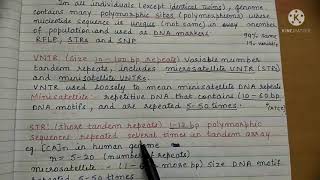 In all individuals (except identical twins), genome
contains many polymorphic sites (polymorphisms) where
nucleotide sequence is unique (not same) in every member
of population and used as DNA markers 99% same
RFLP, STRs and SNP 1% variable
VNTR (size 10-100 bp repeat) Variable number
tandem repeats, includes microsatellite VNTR (STR)
and minisatellite VNTRs.
VNTR used loosely to mean minisatellite DNA repeats
Minisatellite - repetitive DNA that contains (10-60 bp
DNA motifs, and are repeated 5-50 times.
STR: (short tandem repeats) polymorphic
sequences repeated several times in tandem array
eg. [CA]n in human genome
n = 5-20 (number of repeats)
microsatellite - (1-6 or more bp) size DNA motif
repeated 5-50 times
KINEMASTER